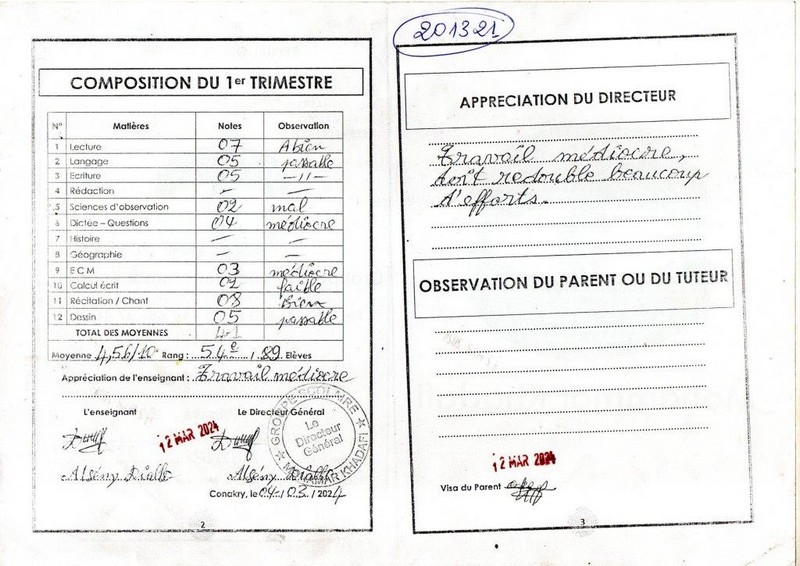 COMPOSITION DU 1er TRIMESTRE
N° Matières Notes Observation
1 Lecture 07 A bien
2 Langage 05 passable
3 Ecriture 05 —11—
4 Rédaction — —
5 Sciences d'observation 02 mal
6 Dictée – Questions 04 médiocre
7 Histoire — —
8 Géographie — —
9 E C M 03 médiocre
10 Calcul écrit 02 faible
11 Récitation / Chant 08 Bien
12 Dessin 05 passable
TOTAL DES MOYENNES 41
Moyenne 4,56/10 Rang : 54e / 89 Elèves
Appréciation de l'enseignant : Travail médiocre
L'enseignant Le Directeur Général
12 MAR 2024
GROUPE SCOLAIRE
Le
Directeur
Général
KHADAFI
Alsény Diallo Alsény Diallo
Conakry, le 04/03/2024
2
201321
APPRECIATION DU DIRECTEUR
Travail médiocre,
doit redouble beaucoup
d'efforts.
OBSERVATION DU PARENT OU DU TUTEUR
12 MAR 2024
Visa du Parent
3